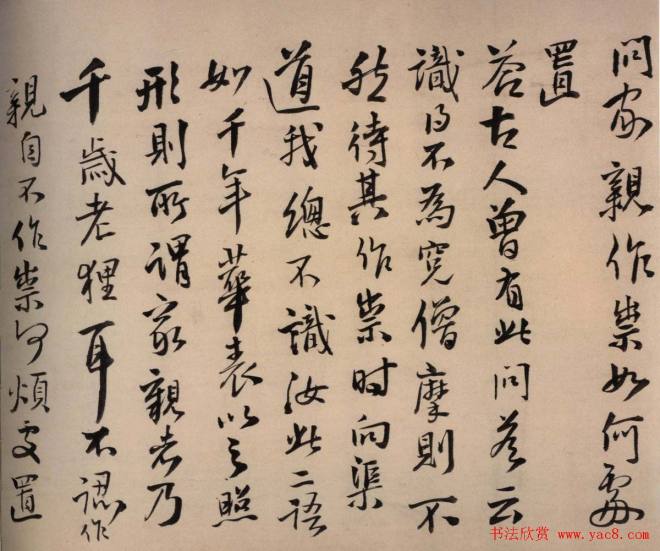 問家親作祟如何處
置
答古人曾有此問答云
識得不為冤僧摩則不
然待其作祟時向渠
道我總不識汝此二語
如千年華表以之照
形則所謂家親者乃
千歲老狸耳不認作
親自不作祟何煩處置
书法欣赏 www.yac8.com